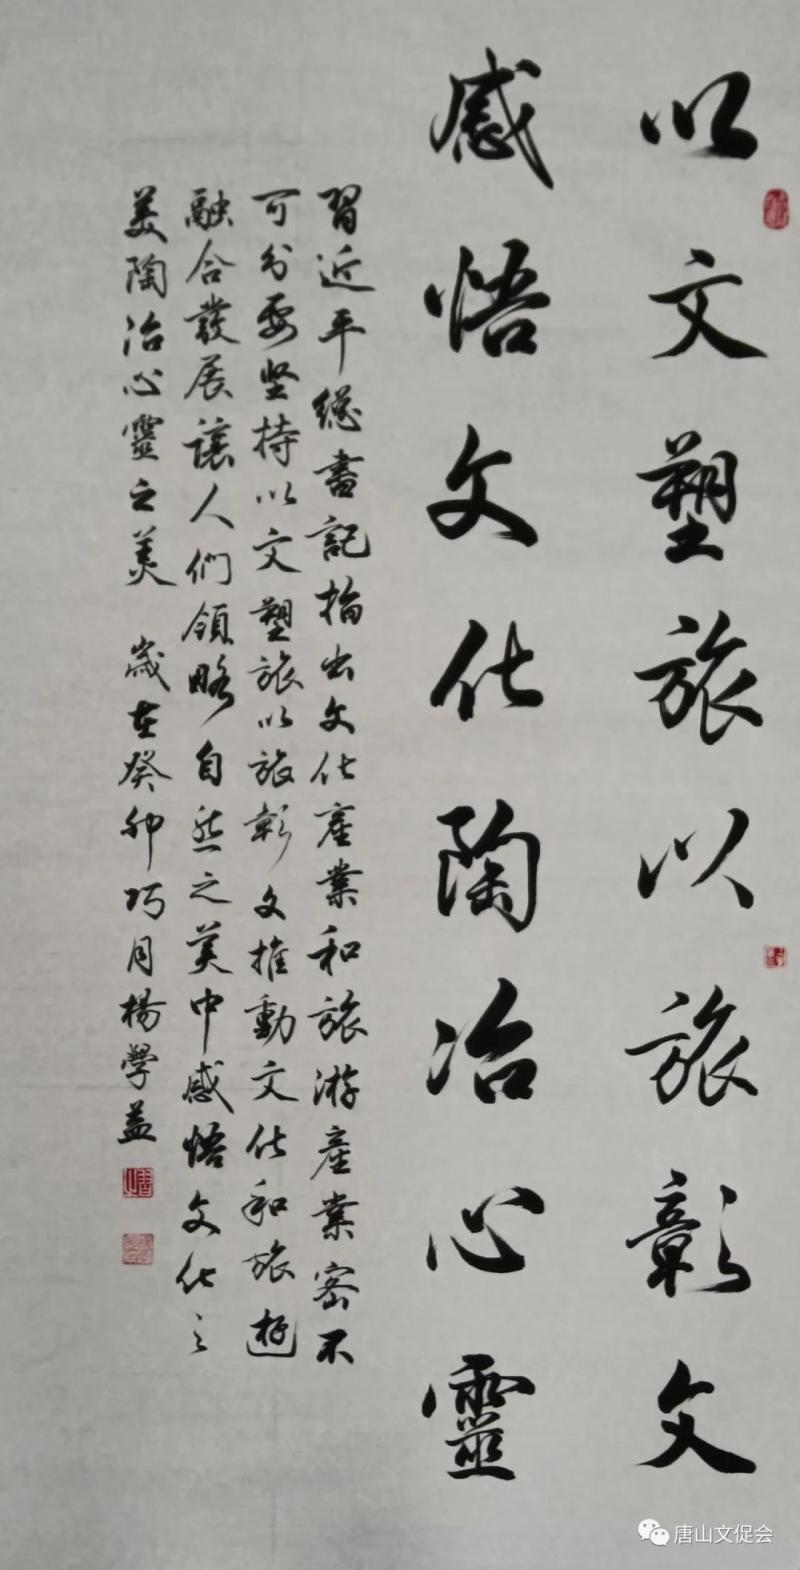 以文塑旅以旅彰文
感悟文化陶冶心靈
習近平總書記指出文化產業和旅游產業密不
可分要坚持以文塑旅以旅彰文推動文化和旅遊
融合發展讓人們領略自然之美中感悟文化之
美陶冶心靈之美 歲在癸卯巧月楊學益
唐山文促会